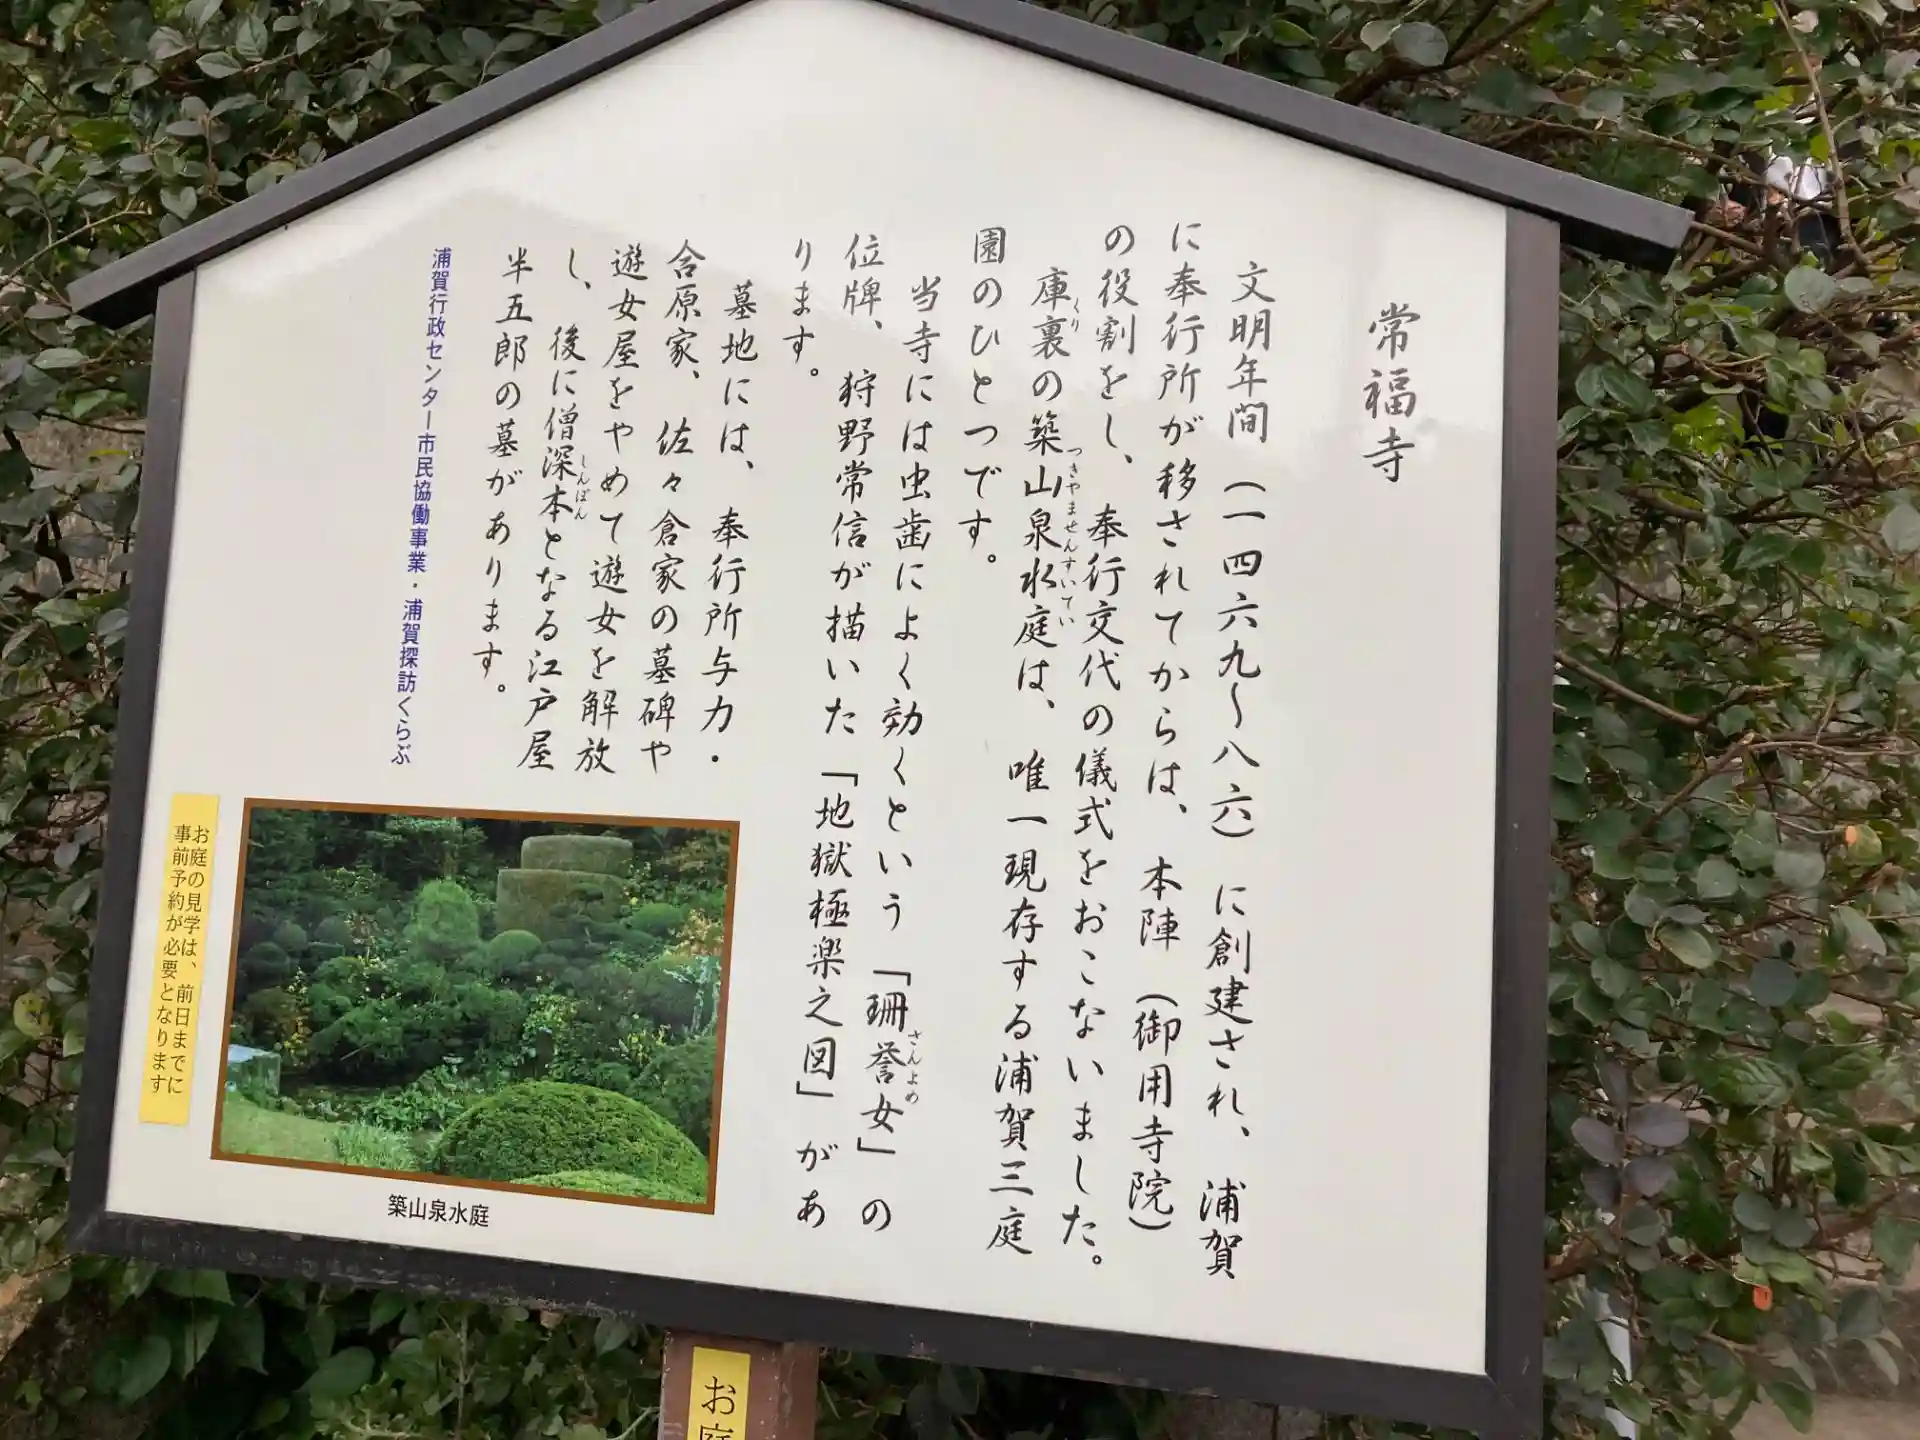 常福寺
文明年間(一四六九〜八六)に創建され、浦賀
に奉行所が移されてからは、本陣(御用寺院)
の役割をし、奉行交代の儀式をおこないました。
庫裏の築山泉水庭は、唯一現存する浦賀三庭
くり
つきやませんすいてい
園のひとつです。
当寺には虫歯によく効くという「珊誉女」の
さんよめ
位牌、狩野常信が描いた「地獄極楽之図」があ
ります。
墓地には、奉行所与力・
合原家、佐々倉家の墓碑や
遊女屋をやめて遊女を解放
し、後に僧深本となる江戸屋
しんぽん
半五郎の墓があります。
浦賀行政センター市民協働事業・浦賀探訪くらぶ
お庭の見学は、前日までに
事前予約が必要となります
築山泉水庭
お庭